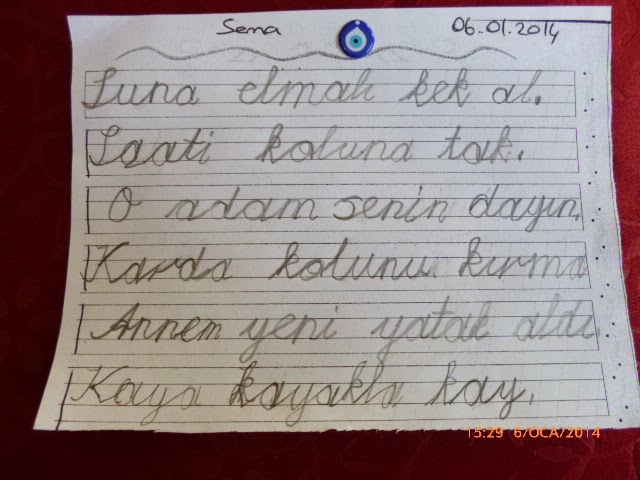 Sema 06.01.2014
Suna elmalı kek al.
Saati koluna tak.
O adam senin dayın.
Karda kolunu kırma
Annem yeni yatak aldı.
Kaya kayakla kay.
15:29 6/OCA/2014